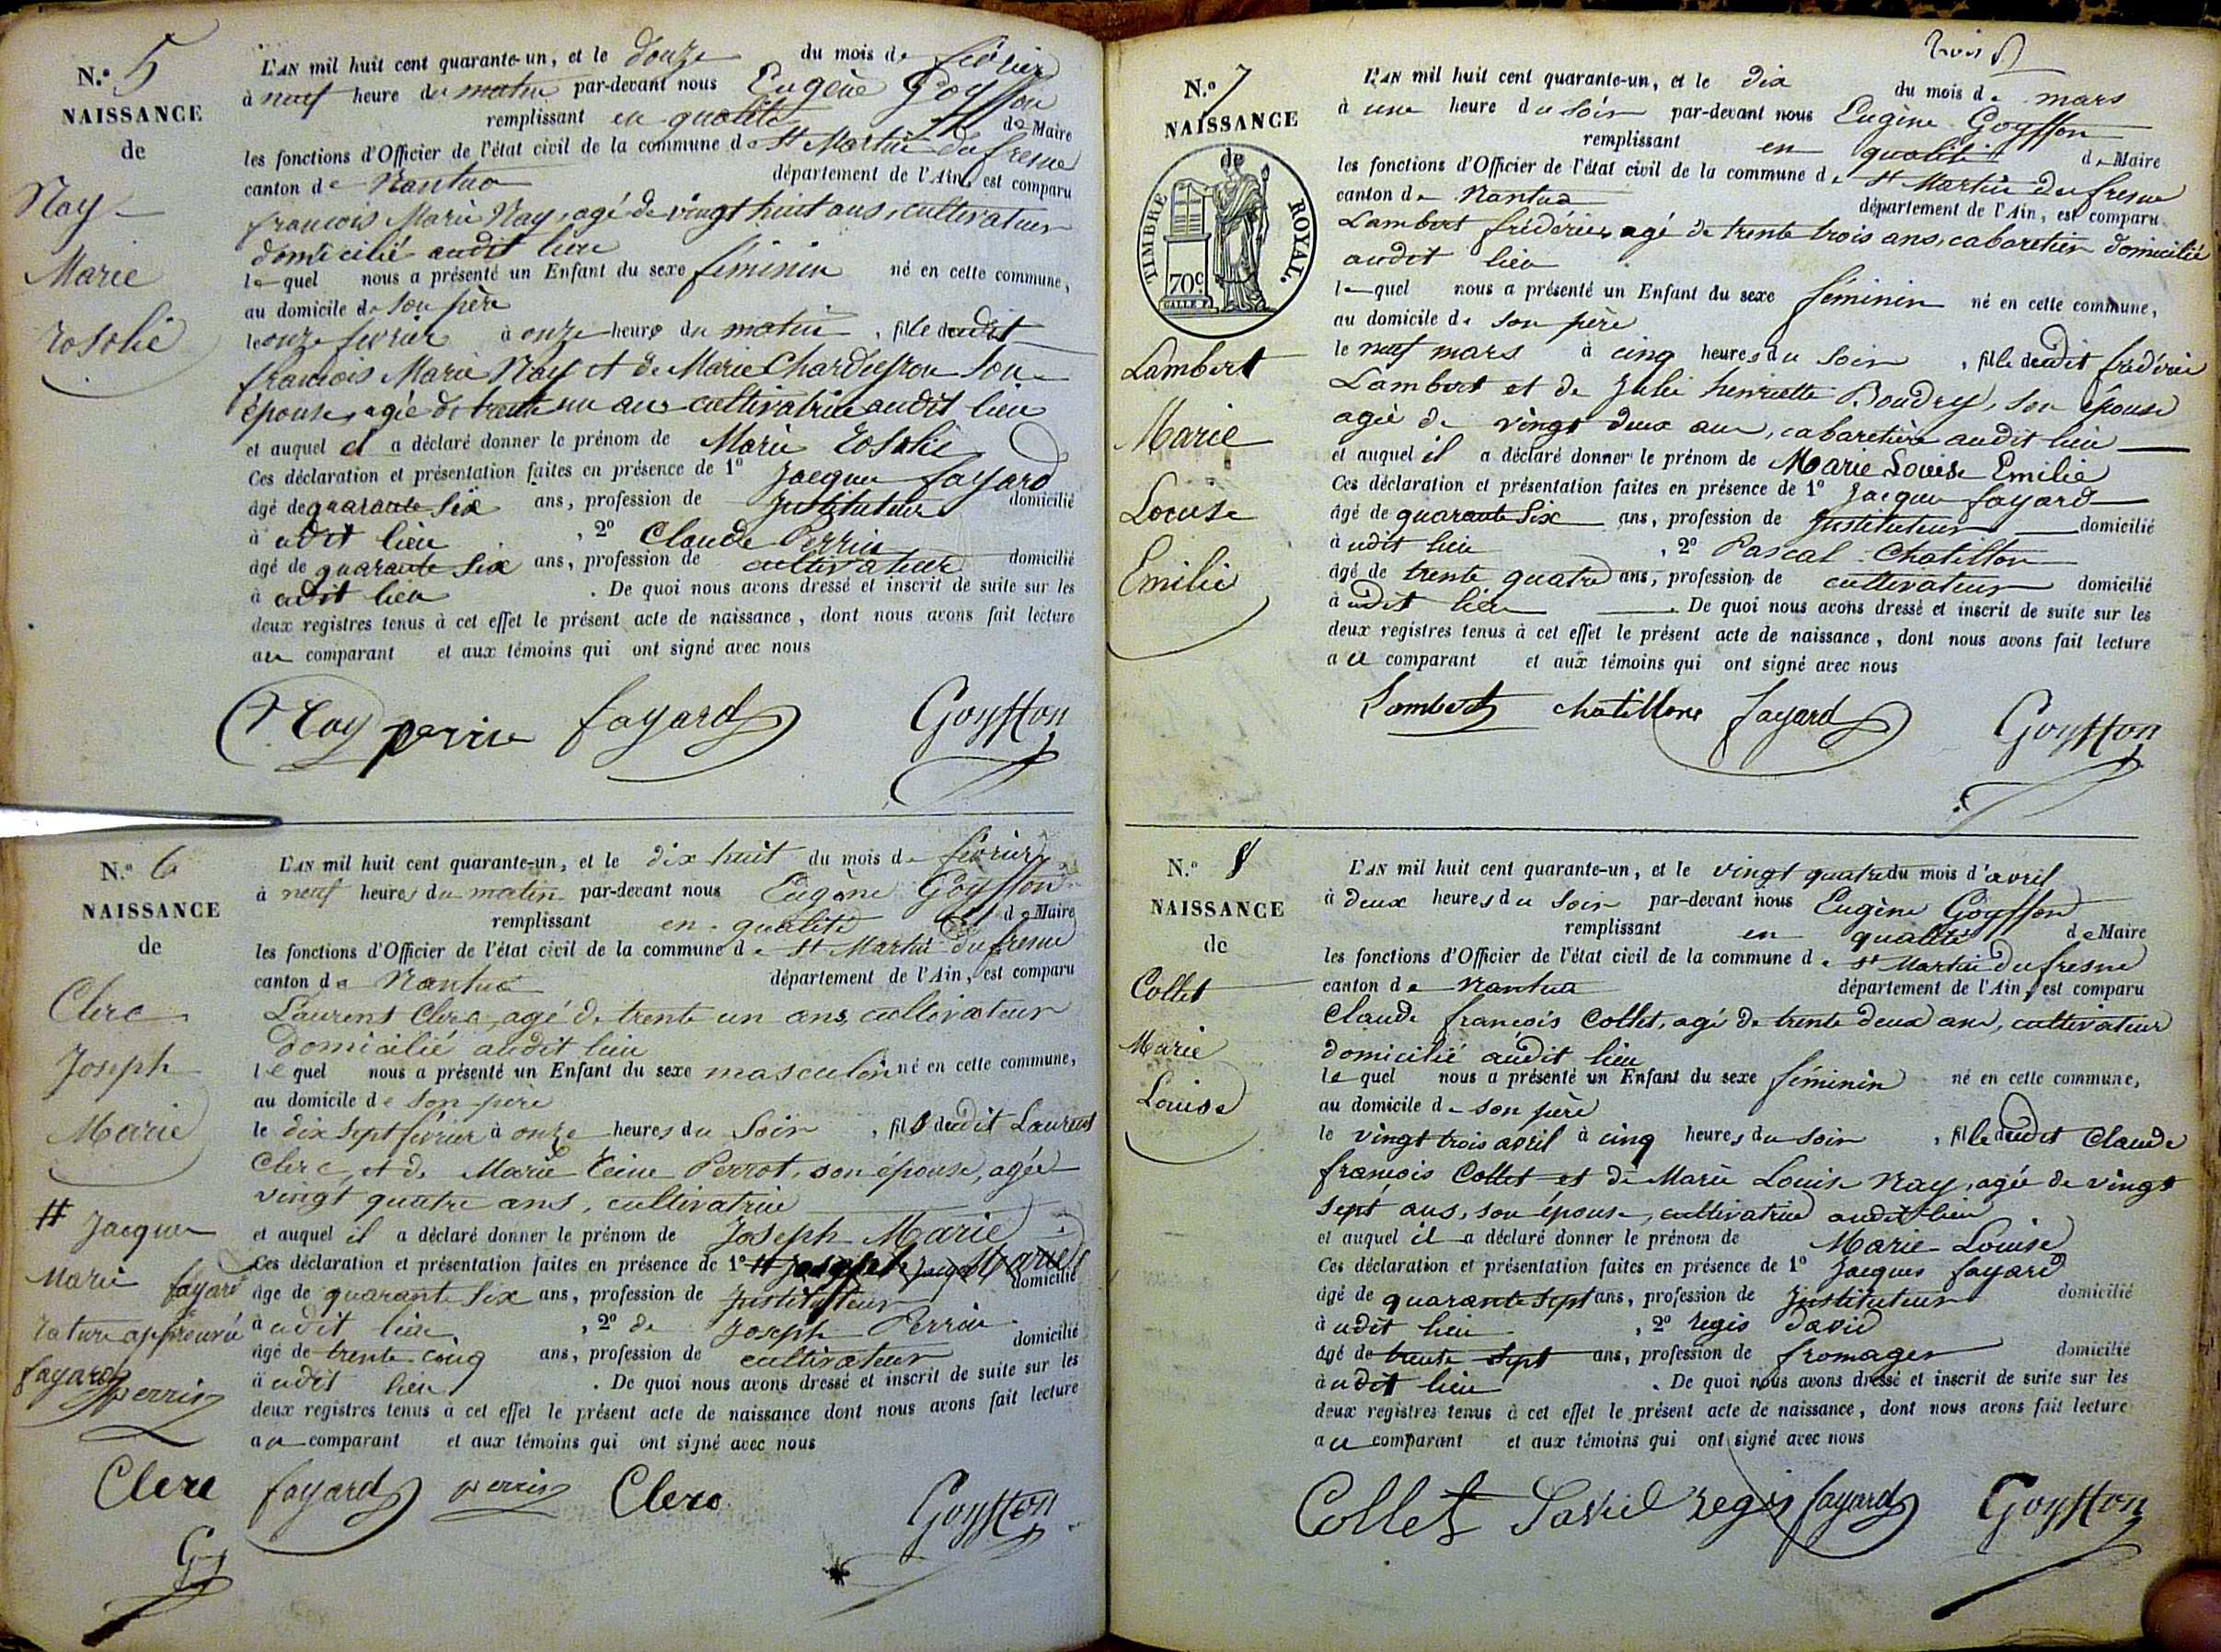 N.º 5
NAISSANCE
de
Nay
Marie
rosalie
L'AN mil huit cent quarante-un, et le douze du mois de février
à neuf heure du matin par-devant nous Eugène Goyffon
remplissant en qualité de Maire
les fonctions d'Officier de l'état civil de la commune de St Martin du fresne
canton de Nantua département de l'Ain, est comparu
françois Marie Nay, agé de vingt huit ans, cultivateur
domicilié audit lieu
lequel nous a présenté un Enfant du sexe féminin né en cette commune,
au domicile de son père
le onze février à onze heure du matin, fille dudit
françois Marie Nay et de Marie Chardeyron son
épouse, agée de trente un ans cultivatrice audit lieu
et auquel il a déclaré donner le prénom de Marie rosalie
Ces déclaration et présentation faites en présence de 1º Jacques fayard
âgé de quarante six ans, profession de Instituteur domicilié
à udit lieu, 2º Claude Perrin
âgé de quarante six ans, profession de cultivateur domicilié
à udit lieu. De quoi nous avons dressé et inscrit de suite sur les
deux registres tenus à cet effet le présent acte de naissance, dont nous avons fait lecture
au comparant et aux témoins qui ont signé avec nous
Nay perrin fayard Goyffon
N.º 6
NAISSANCE
de
Clerc
Joseph
Marie
# Jacques
Marie fayard
rature approuvée
fayard perrin
L'AN mil huit cent quarante-un, et le dix huit du mois de février
à neuf heures du matin par-devant nous Eugène Goyffon
remplissant en qualité de Maire
les fonctions d'Officier de l'état civil de la commune de St Martin du fresne
canton de Nantua département de l'Ain, est comparu
Laurent Clerc, agé de trente un ans, cultivateur
domicilié audit lieu
lequel nous a présenté un Enfant du sexe masculin né en cette commune,
au domicile de son père
le dix sept février à onze heures du soir, fils dudit Laurent
Clerc, et de Marie reine Perrot, son épouse, agée
vingt quatre ans, cultivatrice
et auquel il a déclaré donner le prénom de Joseph Marie
Ces déclaration et présentation faites en présence de 1º # Joseph Marie
âgé de quarante six ans, profession de Instituteur domicilié
à udit lieu, 2º de Joseph Perrin
âgé de trente cinq ans, profession de cultivateur domicilié
à udit lieu. De quoi nous avons dressé et inscrit de suite sur les
deux registres tenus à cet effet le présent acte de naissance dont nous avons fait lecture
au comparant et aux témoins qui ont signé avec nous
Clerc fayard perrin Clerc Goyffon
N.º 7
NAISSANCE
de
TIMBRE ROYAL.
70c
Lambert
Marie
Louise
Emilie
trois
L'AN mil huit cent quarante-un, et le dix du mois de mars
à une heure du soir par-devant nous Eugène Goyffon
remplissant en qualité de Maire
les fonctions d'Officier de l'état civil de la commune de St Martin du fresne
canton de Nantua département de l'Ain, est comparu
Lambert frédéric, agé de trente trois ans, cabaretier domicilié
audit lieu
lequel nous a présenté un Enfant du sexe féminin né en cette commune,
au domicile de son père
le neuf mars à cinq heures du soir, fille dudit frédéric
Lambert et de Julie henriette Boudry, son épouse
agée de vingt deux ans, cabaretière audit lieu
et auquel il a déclaré donner le prénom de Marie Louise Emilie
Ces déclaration et présentation faites en présence de 1º Jacques fayard
âgé de quarante six ans, profession de Instituteur domicilié
à udit lieu, 2º Pascal Chatillon
âgé de trente quatre ans, profession de cultivateur domicilié
à udit lieu. De quoi nous avons dressé et inscrit de suite sur les
deux registres tenus à cet effet le présent acte de naissance, dont nous avons fait lecture
au comparant et aux témoins qui ont signé avec nous
Lambert chatillon fayard Goyffon
N.º 8
NAISSANCE
de
Collet
Marie
Louise
L'AN mil huit cent quarante-un, et le vingt quatre du mois d'avril
à deux heures du soir par-devant nous Eugène Goyffon
remplissant en qualité de Maire
les fonctions d'Officier de l'état civil de la commune de St Martin du fresne
canton de Nantua département de l'Ain, est comparu
Claude françois Collet, agé de trente deux ans, cultivateur
domicilié audit lieu
lequel nous a présenté un Enfant du sexe féminin né en cette commune,
au domicile de son père
le vingt trois avril à cinq heures du soir, fille dudit Claude
françois Collet et de Marie Louise Nay, agée de vingt
sept ans, son épouse, cultivatrice audit lieu
et auquel il a déclaré donner le prénom de Marie Louise
Ces déclaration et présentation faites en présence de 1º Jacques fayard
âgé de quarante sept ans, profession de Instituteur domicilié
à udit lieu, 2º regis david
âgé de trente sept ans, profession de fromager domicilié
à udit lieu. De quoi nous avons dressé et inscrit de suite sur les
deux registres tenus à cet effet le présent acte de naissance, dont nous avons fait lecture
au comparant et aux témoins qui ont signé avec nous
Collet David regis fayard Goyffon